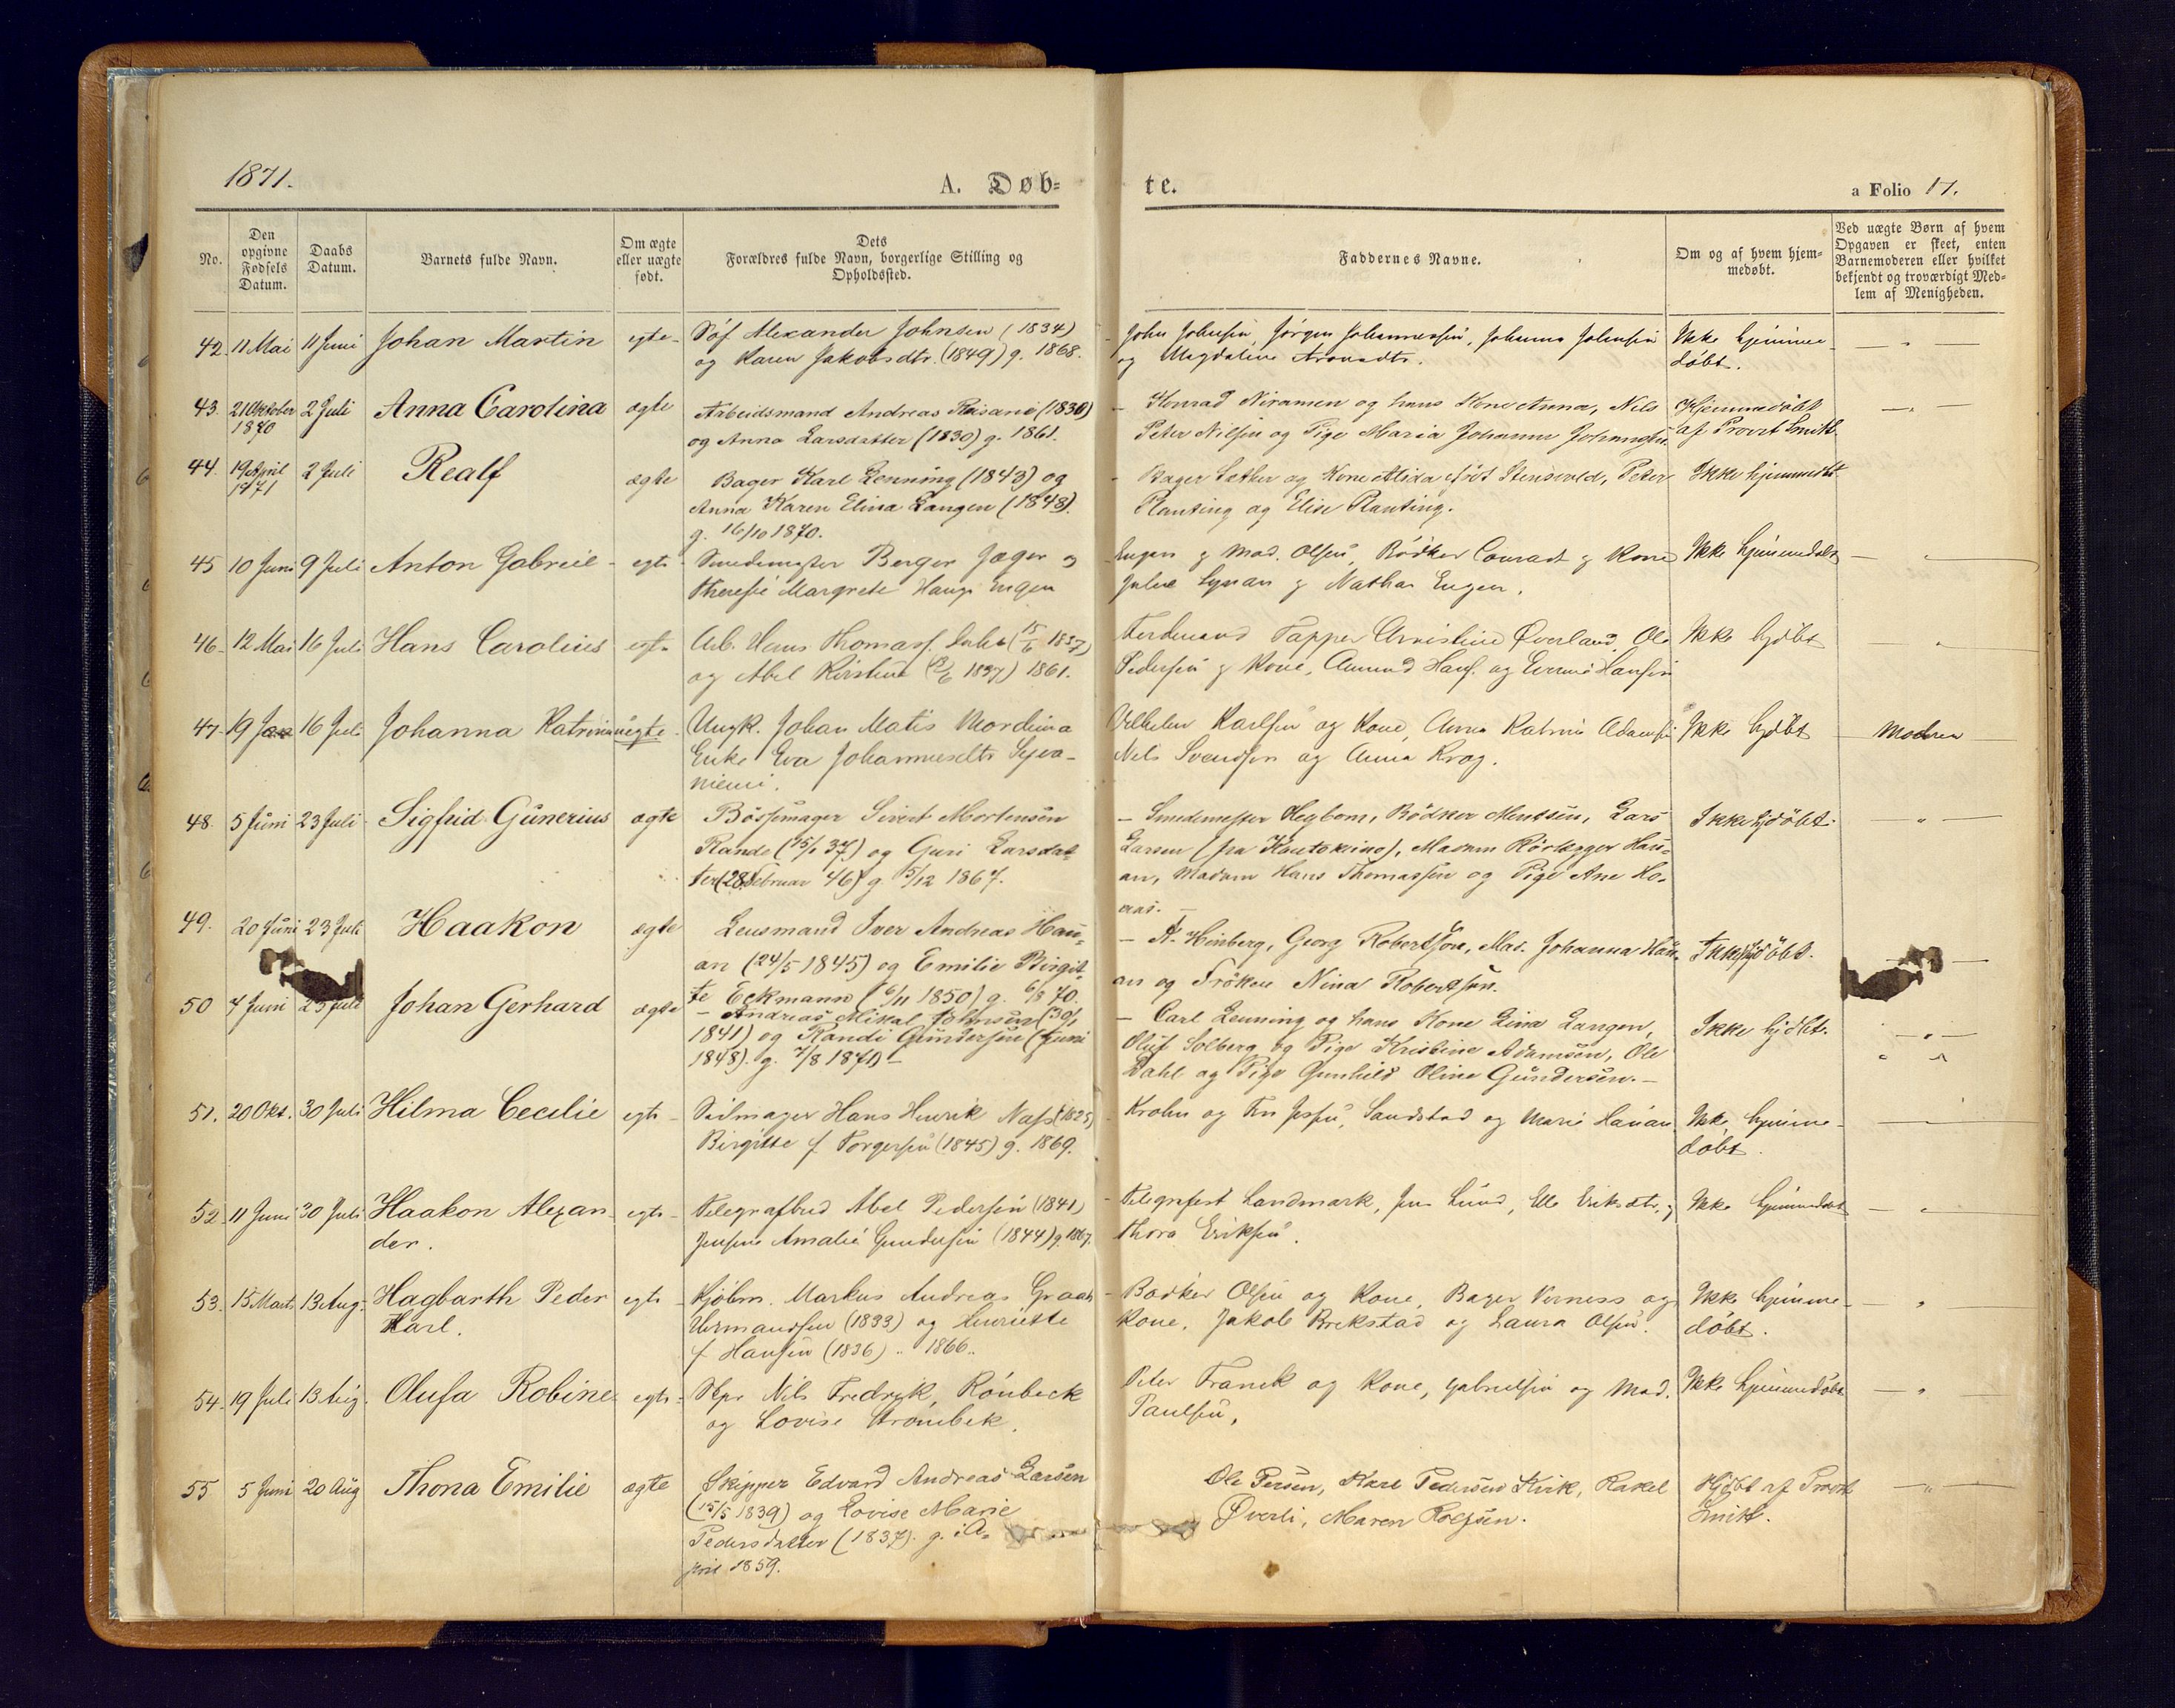 1871.
A. Døb=
te.
a Folio 17.
No.
Den
opgivne
Fødsels
Datum.
Daabs
Datum.
Barnets fulde Navn.
Om ægte
eller uægte
født.
Dets
Forældres fulde Navn, borgerlige Stilling og
Opholdssted.
Faddernes Navne.
Om og af hvem hjem=
medøbt.
Ved uægte Børn af hvem
Opgaven er skeet, enten
Barnemoderen eller hvilket
bekjendt og troværdigt Med=
lem af Menigheden.
42. 11 Mai 11 Juni Johan Martin egte Søf Alexander Johnsen (1834)
og Karen Jakobsdtr. (1849) g. 1868.
John Johnsen, Jørgen Johannessen, Johanna Johnsen
og Magdaline
Ikke hjemme-
døbt.
43. 21 Oktober 2 Juli Anna Carolina ægte Arbeidsmand Andreas Raisanen (1830)
1870
og Anna Larsdatter (1830) g. 1861.
Konrad Niramen og hans Kone Anna, Nils
Peter Nilsen og Pige Maria Johanna
Hjemmedøbt
af Provst Smith
44. 19 April 2 Juli Realf ægte Bager Karl Lenning (1843) og
1871
Anna Karen Elina Langen (1848).
g. 16/10 1870.
Bager og Kone Alida født Stensvold, Peter
Planting og Elise Planting.
Ikke hjemmedbt
45 10 Juni 9 Juli Anton Gabriel egte Smedemester Berger Jæger og
Theresie Margrete Haugs Engen
Engen og Mad. Olsen, Bødker Conradt og Kone
Julie og Nathas Engen.
Ikke hjemmedøbt
46. 12 Mai 16 Juli Hans Carolius egte Arb. Hans Thomas. (15/6 1837)
og Abel Kirstine 1837) 1861.
Ferdinand Tapper Christine Øverland, Ole
Pedersen og Kone, Amund Hans. og Hansen
Ikke hjdøbt
47. 19 Jan 16 Juli Johanna Katrina uegte Ungk. Johan Matis Mordina
Enke Eva Johannesdtr Sejva-
niemi.
Vilhelm Karlsen og Kone, Anna Katrine Adamsen
Nils Svendsen og Anna Krog.
Ikke hjdøbt
Modren
48. 5 Juni 23 Juli Sigfrid Gunerius ægte Bøssemager Sivert Mortensen
Rande (15/1 37) og Guri Larsdat=
ter (28 Februar 46) g. 5/12 1867.
Smedemester Hegbom, Bødker Mentsen, Lars
Larsen (fra Kautokeino), Madam Rørlegger Hau=
an, Madam Hans Thomassen og Pige Ane Ho-
aas.
Ikke hjdøbt.
49. 20 Juni 23 Juli Haakon ægte Lensmand Iver Andreas Hau=
an (24/5 1845) og Emilie Birgit=
te Eckmann (6/11 1850) g. 6/8 70.
A. Hinberg, Georg Robertson, Mad. Johanna Hau=
an og Frøken Nina Robertson.
Ikke hjdøbt.
50 4 Juni 23 Juli Johan Gerhard ægte Andreas Mikal Johnsen (30/1
1841) og Randi Gundersen (Juni
1848). g. 7/8 1870
Carl Lenning og hans Kone Lina Langen,
Oluf Solberg og Pige Kristine Adamsen, Ole
Dahl og Pige Gunhild Oline Gundersen.
Ikke hjdbt.
51. 20 Okt. 30 Juli Hilma Cecilie egte Seilmager Hans Henrik Næss (1825)
Birgitte f. Torgersen (1845) g. 1869.
Krohn og Fru Sandstad og Marie Hauan
Ikke hjemme-
døbt.
52 11 Juni 30 Juli Haakon Alexan- egte Telegrafbud Abel Pedersen (1841)
der.
Jensine Amalie Gundersen (1844) g. 1867.
Telegrafist Landmark, Jens Lund, Elle Eriksdtr. og
Thora Eriksen.
Ikke hjemmedøbt
53. 15 Marts 13 Aug. Hagbarth Peder egte Kjøbm. Markus Andreas Graah
Karl.
(1833) og Henriette
f. Hansen (1836) .. 1866.
Bødker Olsen og Kone, Bager Verness og
Kone, Jakob Brekstad og Laura Olsen.
Ikke hjemme-
døbt.
54. 19 Juli 13 Aug. Olufa Robine egte Skpr Nils Fredrik Rönbeck
og Lovise
Peter Franck og Kone, Gabrielsen og Mad.
Paulsen,
Ikke hjemmedøbt
55 5 Juni 20 Aug Thona Emilie ægte Skipper Edvard Andreas Larsen
(15/5 1839) og Lovise Marie
Pedersdatter (1837). g. i A=
pril 1859.
Ole Persen, Karl Pedersen Kirk, Rakel
Øverli, Maren
Hjdbt af Provst
Smith.